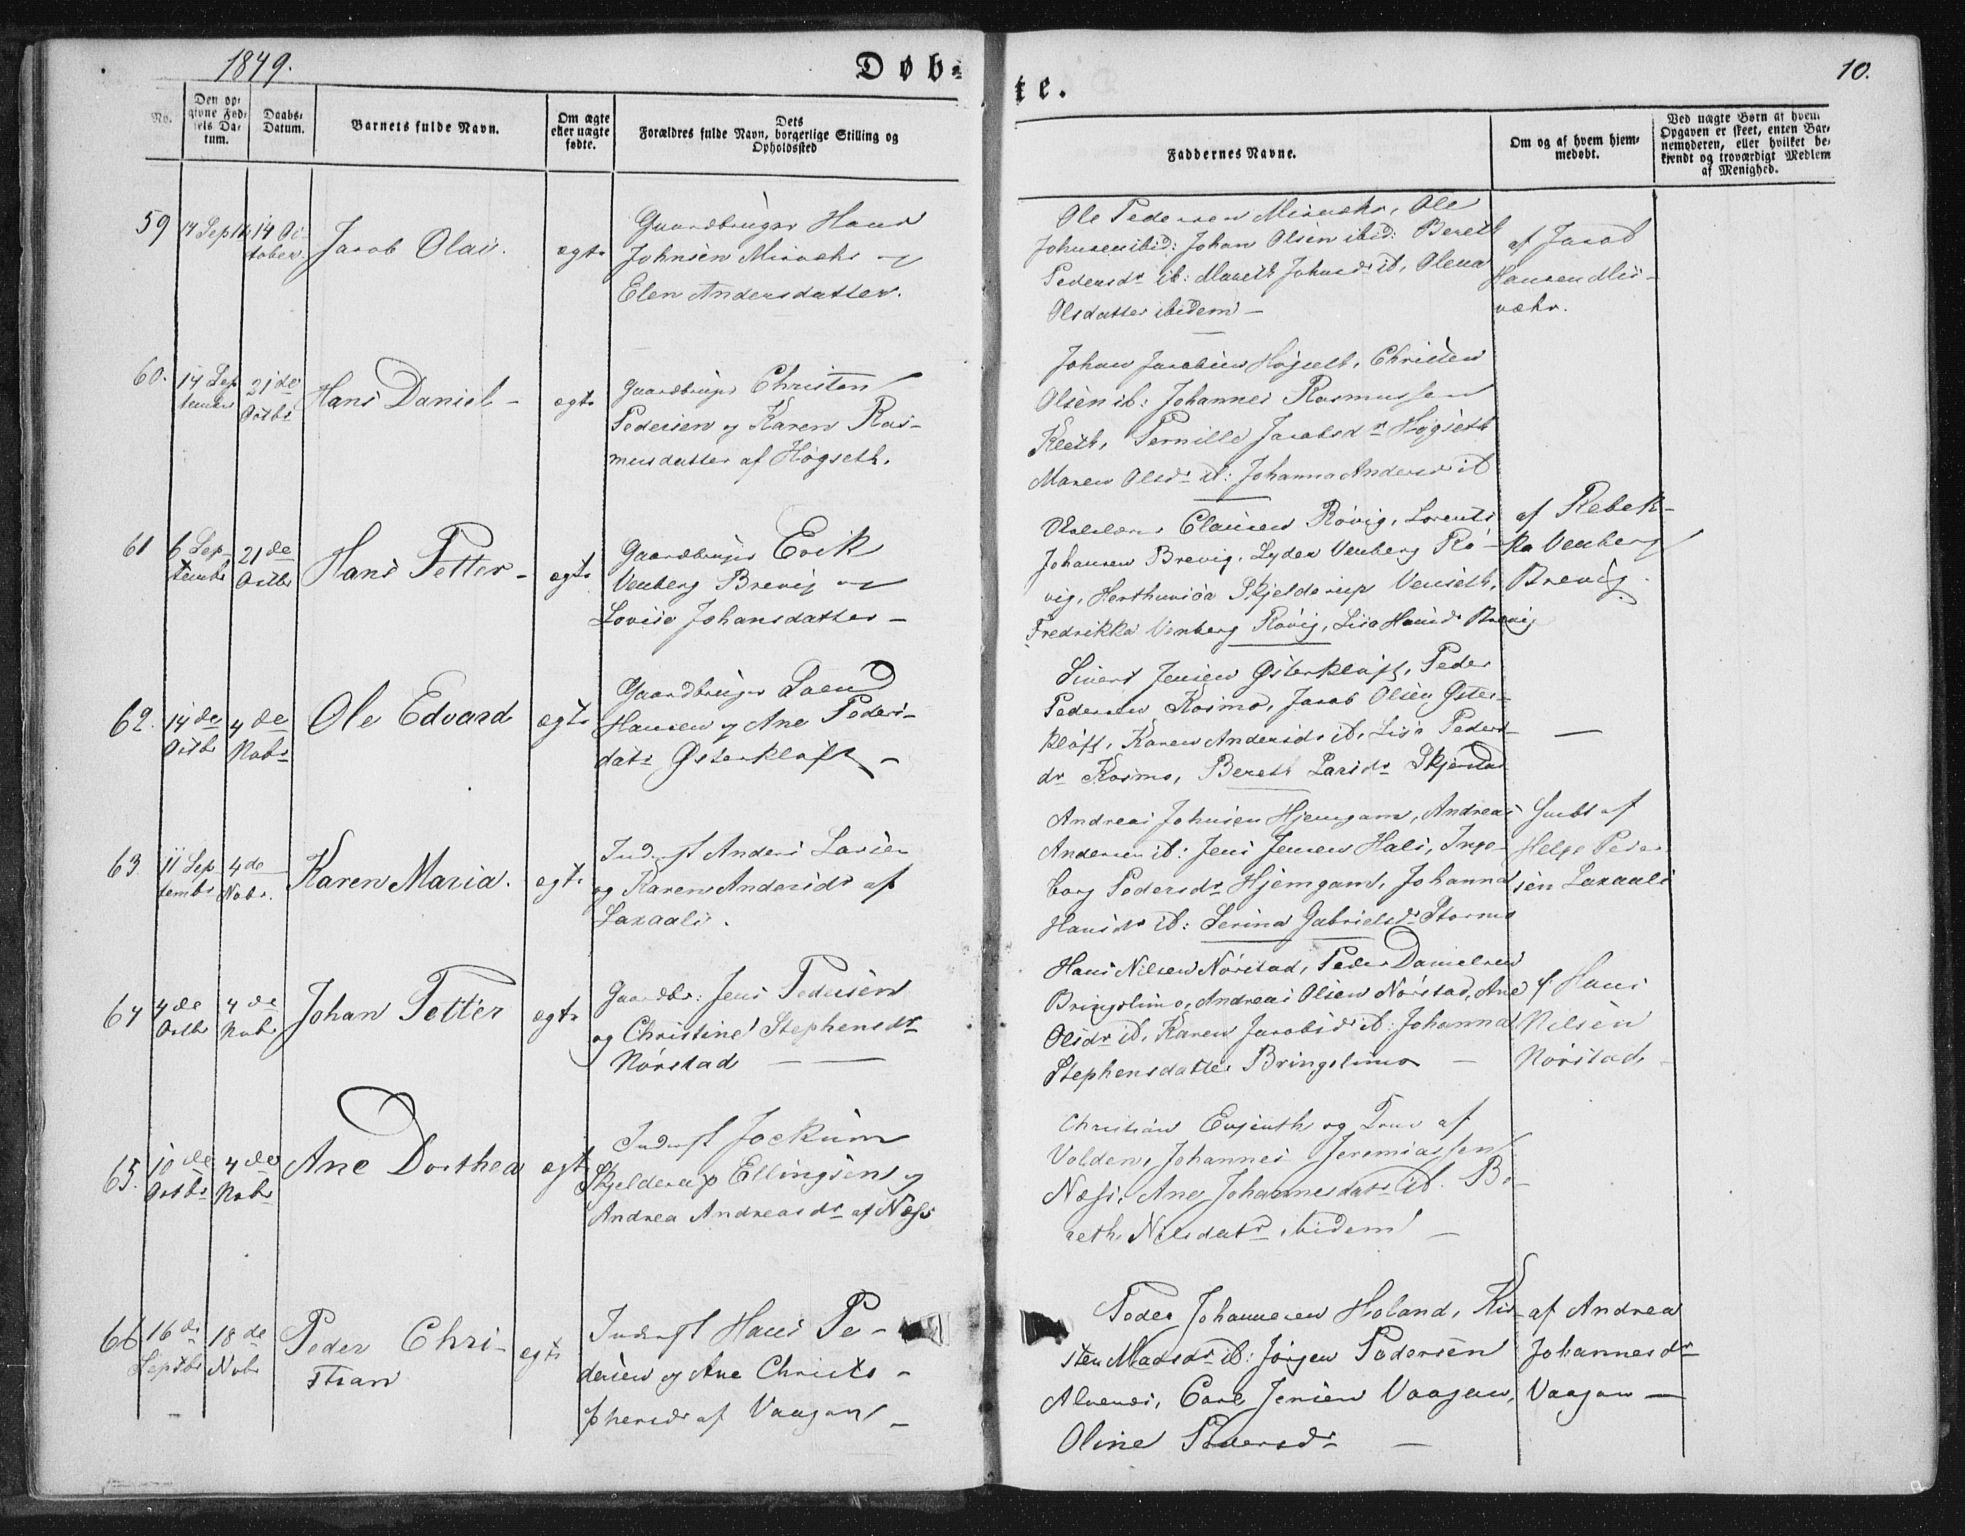 1849.
Døb-
te.
10.
No.
Den op-
givne Fød-
sels Da-
tum.
Daabs-
Datum.
Barnets fulde Navn.
Om ægte
eller uægte
fødte.
Dets
Forældres fulde Navn, borgerlige Stilling og
Opholdssted
Faddernes Navne.
Om og af hvem hjem-
medøbt.
Ved uægte Børn af hvem
Opgaven er skeet, enten Bar-
nemoderen, eller hvilket be-
kjendt og troværdigt Medlem
af Menighed.
59
14 Septb
14 Oc-
tober
Jacob Olai.
egte
Gaardbruger Hans
Johnsen Misvæhr og
Elen Andersdatter.
Ole Pedersen Misvæhr, Ole
Johnsen ibid: Johan Olsen ibid: Bereth
Pedersdr ib: Mareth Johnsdr ib, Olena
Olsdatter ibidem —
af Jacob
Hansen Mis-
væhr.
60.
14 Sep
tember
21de
Octbr
Hans Daniel -
egte
Gaardbruger Christen
Pedersen og Karen Ras-
musdatter af Høgseth.
Johan Jacobsen Høgseth, Christen
Olsen ib: Johannes Rasmussen
Kleth, Pernille Jacobsdr Høgseth
Maren Olsdr ib: Johanna Andersdr ib
61
6 Sep-
tembr
21de
Octbr
Hans Petter -
egte
Gaardbruger Erik
Venberg Brevig og
Lovise Johansdatter -
Clausen Røvig, Lorents
Johansen Brevig, Lyder Venberg Rø-
vig, Skjelderup Venseth,
Fredrikka Venberg Røvig, Lisa Hansdr Brevig
af Rebek-
ka Venberg
Brevig.
62.
14de
Octbr
4de
Nobr
Ole Edvard
egte
Gaardbruger
Hansen og Ane Peders-
datr Østerkløft -
Sivert Jensen Østerkløft, Peder
Pedersen Kosmo, Jacob Olsen Øster-
kløft, Karen Andersdr ib, Lisa Peders-
dr Kosmo, Bereth Larsdr Skjerstad
—
63.
11 Sep
tembr
4de
Nobr.
Karen Maria.
egte
Inderst Anders Larsen
og Karen Andersdr af
Laxaali.
Andreas Johnsen Hjemgam, Andreas
Andersen ib: Jens Jensen Hals, Inge-
borg Pedersdr Hjemgam, Johanna
Hansdr ib: Serina Gabrielsdr Stormo
Døbt af
Helge Peder
sen Laxaali
64
4de
Octbr
4de
Nobr
Johan Petter
egte
Gaardbr: Jens Pedersen
og Christine Stephensdr
Nørstad —
Hans Nilsen Nørstad, Peder Danielsen
Bringslimo, Andreas Olsen Nørstad, Ane
Olsdr ib, Karen Jacobsdr ib: Johanna
Stephensdatter Bringslimo —
af Hans
Nilsen
Nørstad
65.
10de
Octbr
4de
Nobr
Ane Dorthea
egte
Inderst Jockum
Skjelderup Ellingsen og
Andrea Andreasdr af Næss
Christian Evjenth og Frue af
Volden, Johannes Jeremiassen
Næss, Ane Johannesdatr ib. Be-
reth Nilsdatr ibidem —
66
16de
Septbr
18de
Nobr
Peder Chri-
stian
egte
Inderst Hans Pe-
dersen og Ane Christo-
phersdr af Vaagan -
Peder Johannesen Holand, Kir-
sten Madsdr ib: Jørgen Pedersen
Alvenes, Carl Jensen Vaagan,
Oline Pedersdr —
af Andrea
Johannesdr
Vaagan —